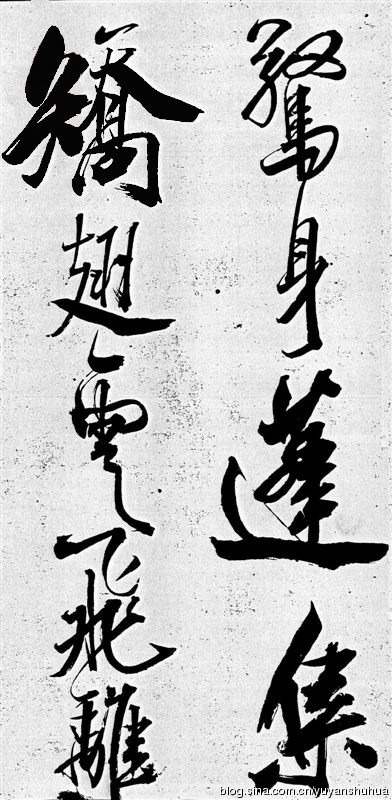 驚身蓬集
矯翅雲飛離
blog.sina.com.cn/yuyanshuhua